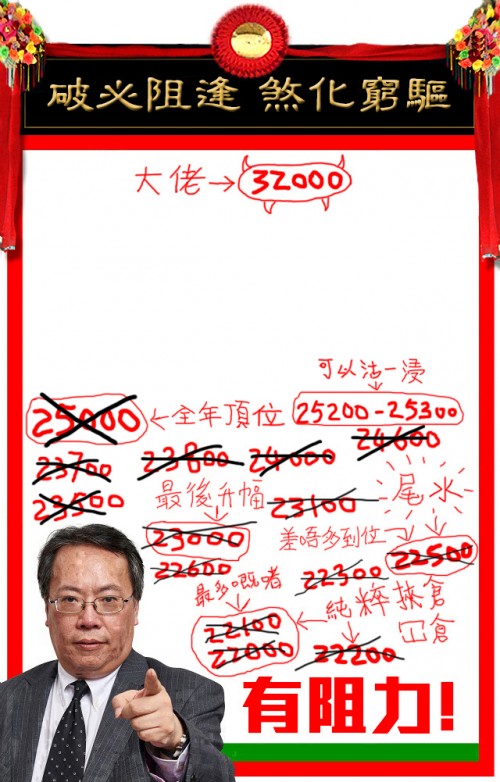 驅窮化煞 逢阻必破
大佬→32000
可以沽一浸
25000←全年頂位
25200-25300
24600
23700
23800
24000
23500
最後升幅
23100
尾水
23000
差唔多到位
22500
22600
22300
最多嘅啫
純粹挾倉
冚倉
22100
22000
22200
有阻力!